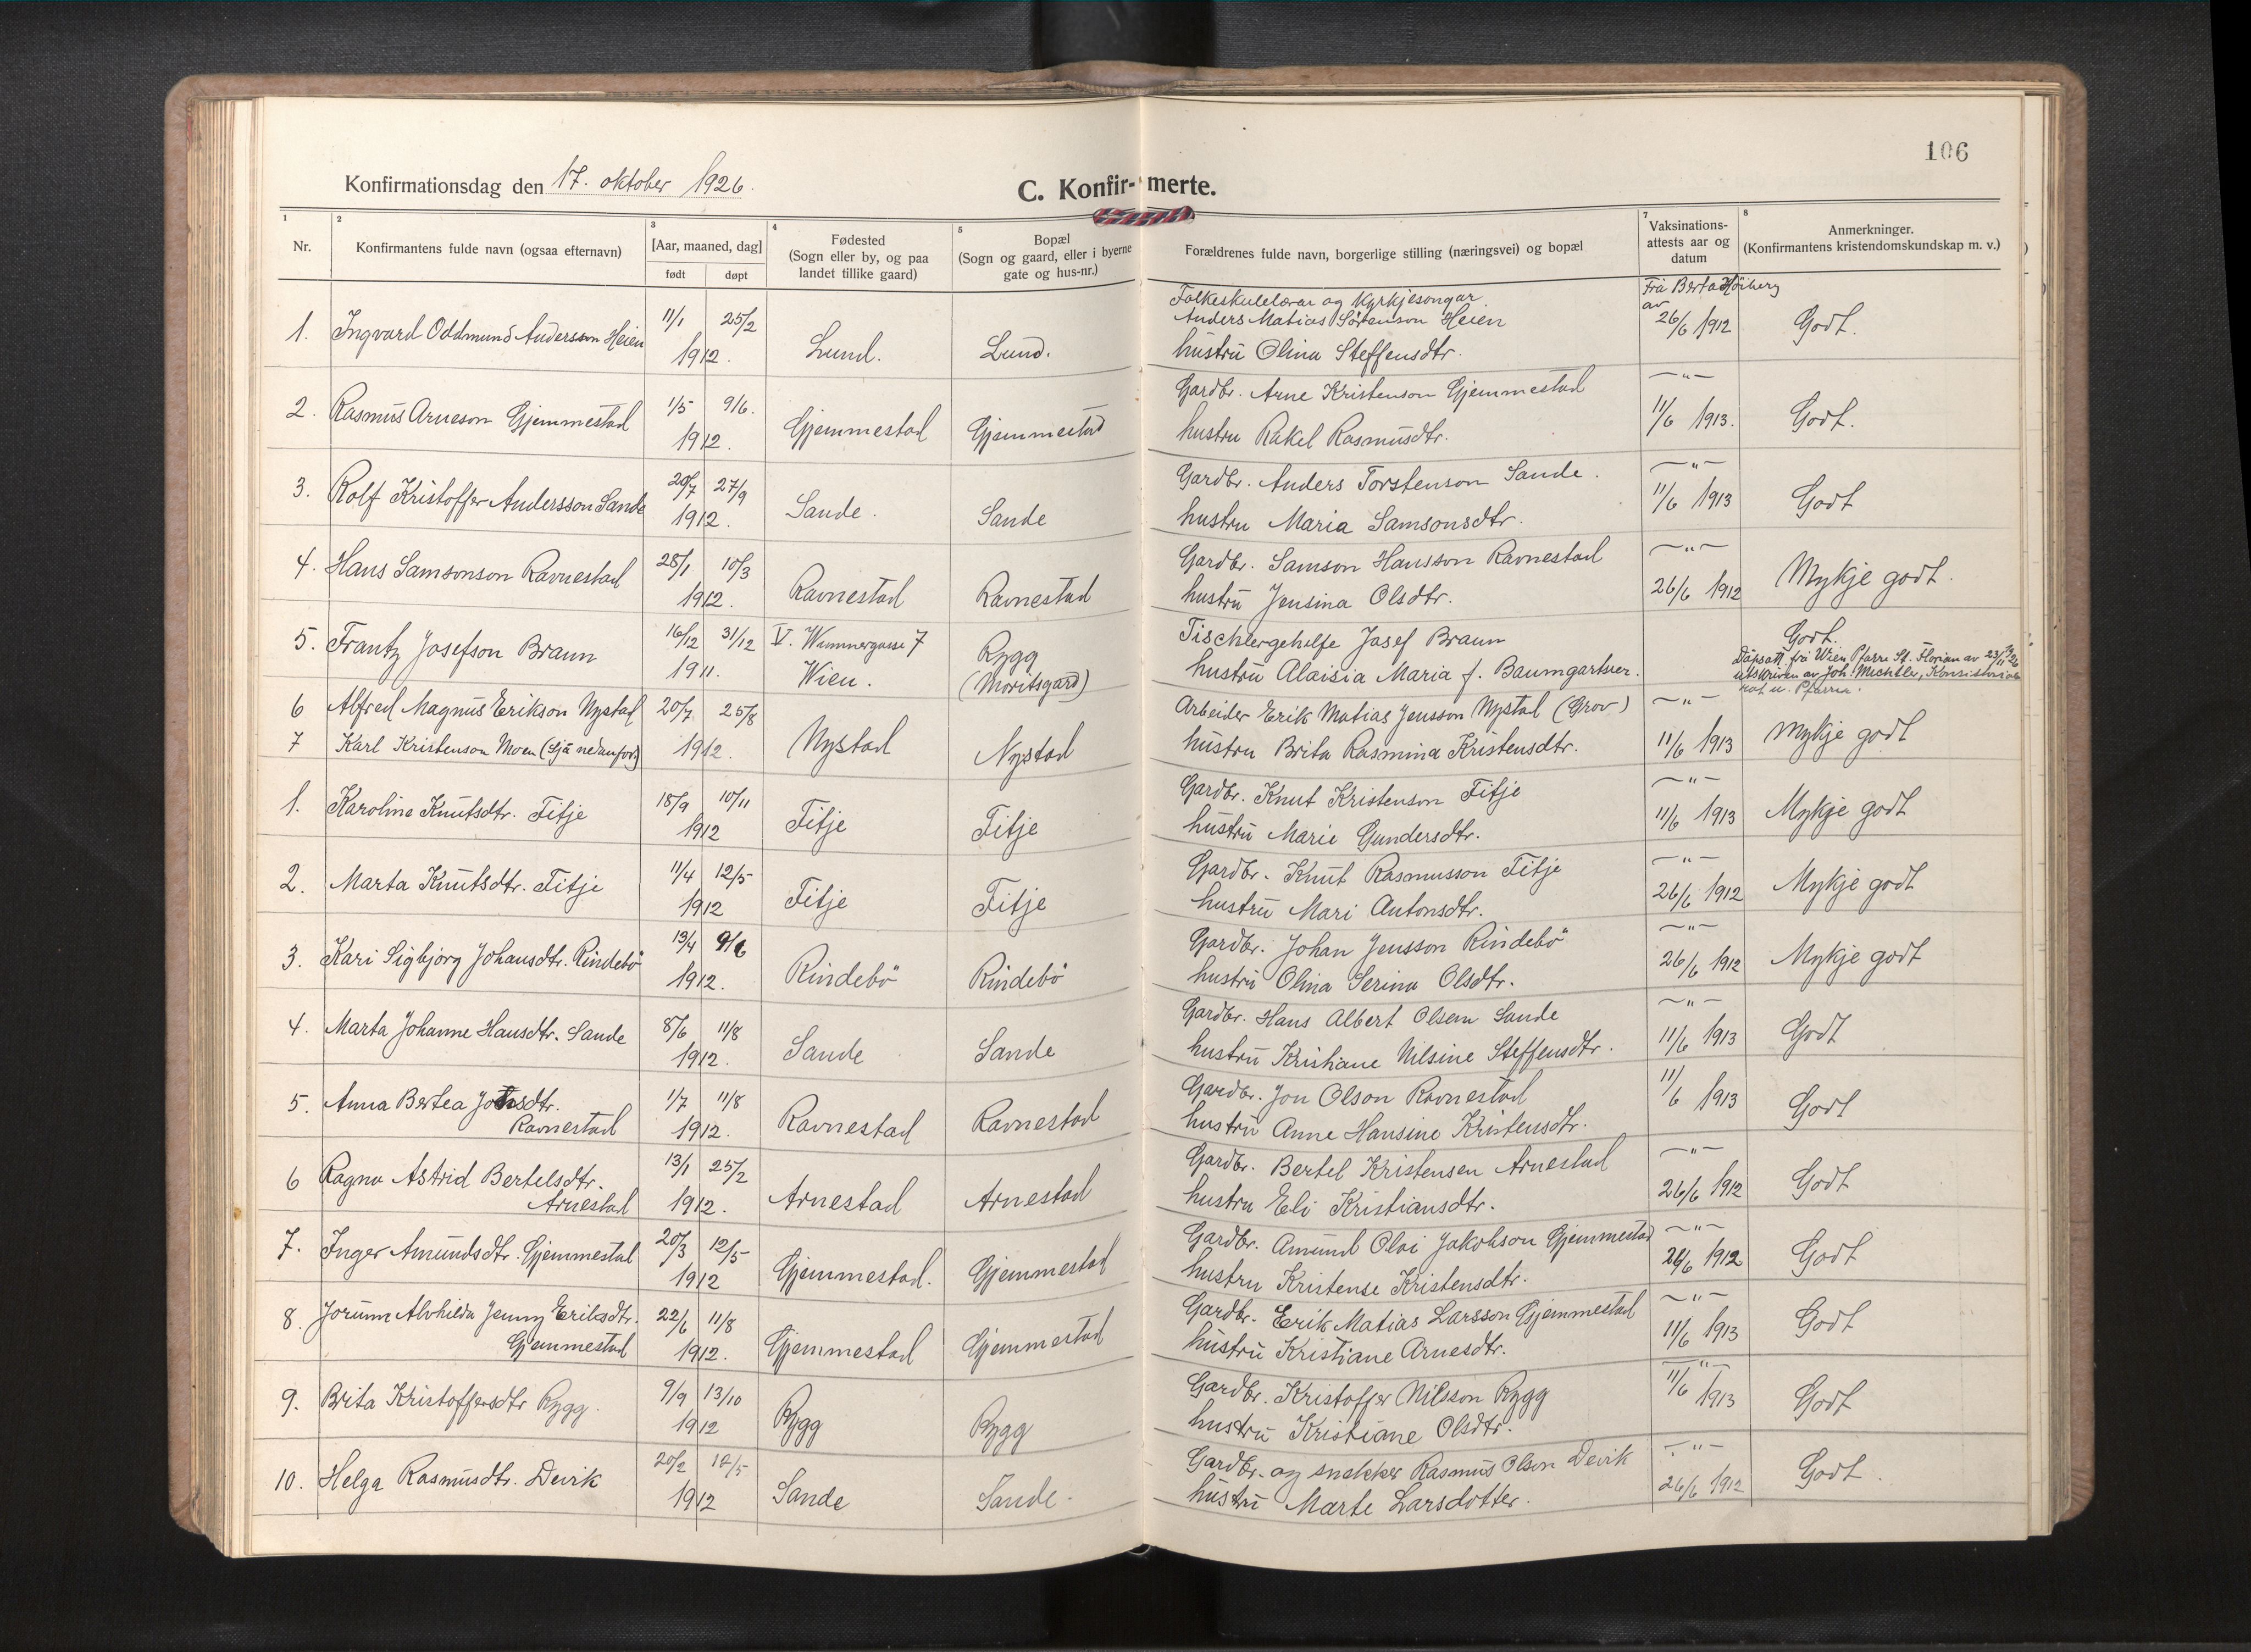 106
Konfirmationsdag den 17. oktober 1926.
C. Konfir-merte.
1 2 3 4 5 7 8
Nr.
Konfirmantens fulde navn (ogsaa efternavn)
[Aar, maaned, dag]
født døpt
Fødested
(Sogn eller by, og paa
landet tillike gaard)
Bopæl
(Sogn og gaard, eller i byerne
gate og hus-nr.)
Forældrenes fulde navn, borgerlige stilling (næringsvei) og bopæl
Vaksinations-
attests aar og
datum
Anmerkninger.
(Konfirmantens kristendomskundskap m. v.)
1. Ingvard Oddmund Andersson Heien 11/1 25/2
1912. Lund. Lund.
Folkeskulelærar og Kyrkjesongar.
Anders Matias Sörenson Heien
hustru Olina Steffensdtr.
Frå Berta Höiberg
av
26/6 1912 Godt.
2. Rasmus Arneson Gjemmestad 1/5 9/6.
1912. Gjemmestad Gjemmestad
Gardbr. Arne Kristenson Gjemmestad
hustru Rakel Rasmusdtr.
—"—
11/6 1913. Godt.
3. Rolf Kristoffer Andersson Sande 20/7 27/9
1912. Sande. Sande
Gardbr. Anders Torstenson Sande.
hustru Maria Samsonsdtr.
—"—
11/6 1913 Godt
4. Hans Samsonson Ravnestad 28/1 10/3
1912. Ravnestad Ravnestad
Gardbr. Samson Hansson Ravnestad
hustru Jensina Olsdtr.
—"—
26/6 1912 Mykje godt.
5. Frantz Josefson Braun 16/12 31/12
1911. V. Wimmergasse 7
Wien.
Rygg
(Moritsgard)
Tischlergehilfe Josef Braun
hustru Aloisia Maria f. Baumgartner.
Godt.
Dåpsatt. frå Wien Pfarre St. Florian av 23/11
utskriven av Joh. Michtler,
u. Pfarrer.
6 Alfred Magnus Erikson Nystad 20/7 25/8
7 Karl Kristenson Moen (sjå nedanfor) 1912. Nystad Nystad
Arbeider Erik Matias Jensson Nystad (Grov)
hustru Brita Rasmina Kristensdtr.
—"—
11/6 1913 Mykje godt
1. Karoline Knutsdtr. Fitje 18/9 10/11
1912 Fitje Fitje
Gardbr. Knut Kristenson Fitje
hustru Marie Gundersdtr.
—"—
11/6 1913 Mykje godt
2. Marta Knutsdtr. Fitje 11/4 12/5
1912 Fitje Fitje
Gardbr. Knut Rasmusson Fitje
hustru Mari Antonsdtr.
—"—
26/6 1912 Mykje godt
3. Kari Sigbjørg Johansdtr. Rindebö 13/4 9/6
1912. Rindebö Rindebö
Gardbr. Johan Jensson Rindebö
hustru Olina Serina Olsdtr.
—"—
26/6 1912 Mykje godt
4. Marta Johanne Hansdtr. Sande 8/6 11/8
1912. Sande Sande
Gardbr. Hans Albert Olsen Sande
hustru Kristiane Nilsine Steffensdtr.
—"—
11/6 1913 Godt
5. Anna Bertea Jonsdtr.
Ravnestad 1/7 11/8
1912. Ravnestad Ravnestad
Gardbr. Jon Olson Ravnestad
hustru Anne Hansine Kristensdtr.
11/6 1913 Godt
6 Ragna Astrid Bertelsdtr.
Arnestad 13/1 25/2
1912. Arnestad Arnestad
Gardbr. Bertel Kristensen Arnestad
hustru Eli Kristiansdtr.
—"—
26/6 1912 Godt
7. Inger Amundsdtr. Gjemmestad 20/3 12/5
1912 Gjemmestad. Gjemmestad
Gardbr. Amund Olai Jakobson Gjemmestad
hustru Kristense Kristensdtr.
—"—
26/6 1912 Godt
8. Jorunn Alvhilda Jenny Eriksdtr.
Gjemmestad 22/6 11/8
1912. Gjemmestad Gjemmestad
Gardbr. Erik Matias Larsson Gjemmestad
hustru Kristiane Arnesdtr.
—"—
11/6 1913 Godt
9. Brita Kristoffersdtr Rygg. 9/9 13/10
1912 Rygg Rygg
Gardbr. Kristoffer Nilsson Rygg
hustru Kristiane Olsdtr.
—"—
11/6 1913 Godt
10. Helga Rasmusdtr. Devik 20/2 12/5
1912 Sande Sande.
Gardbr. og snekker Rasmus Olson Devik
hustru Marte Larsdotter.
—"—
26/6 1912 Godt.